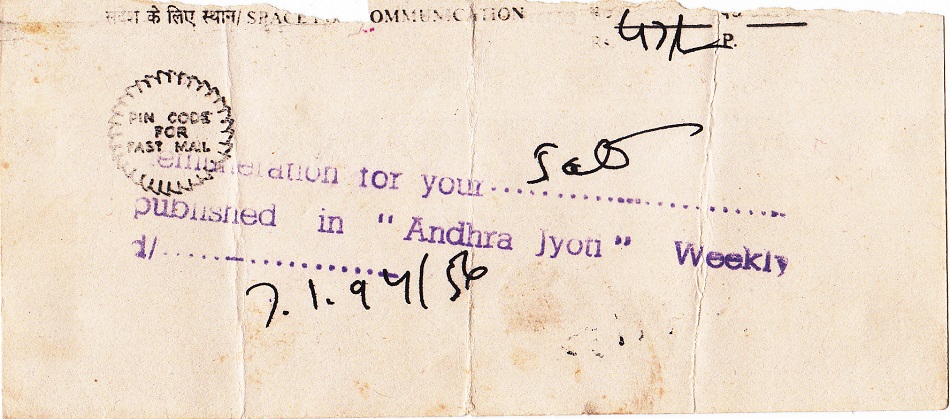 के लिए स्थान/ SPACE OMMUNICATION
PIN CODE
FOR
FAST MAIL
emuneration for your....................
published in "Andhra Jyoti" Weekly
d/....................
7.1.94/